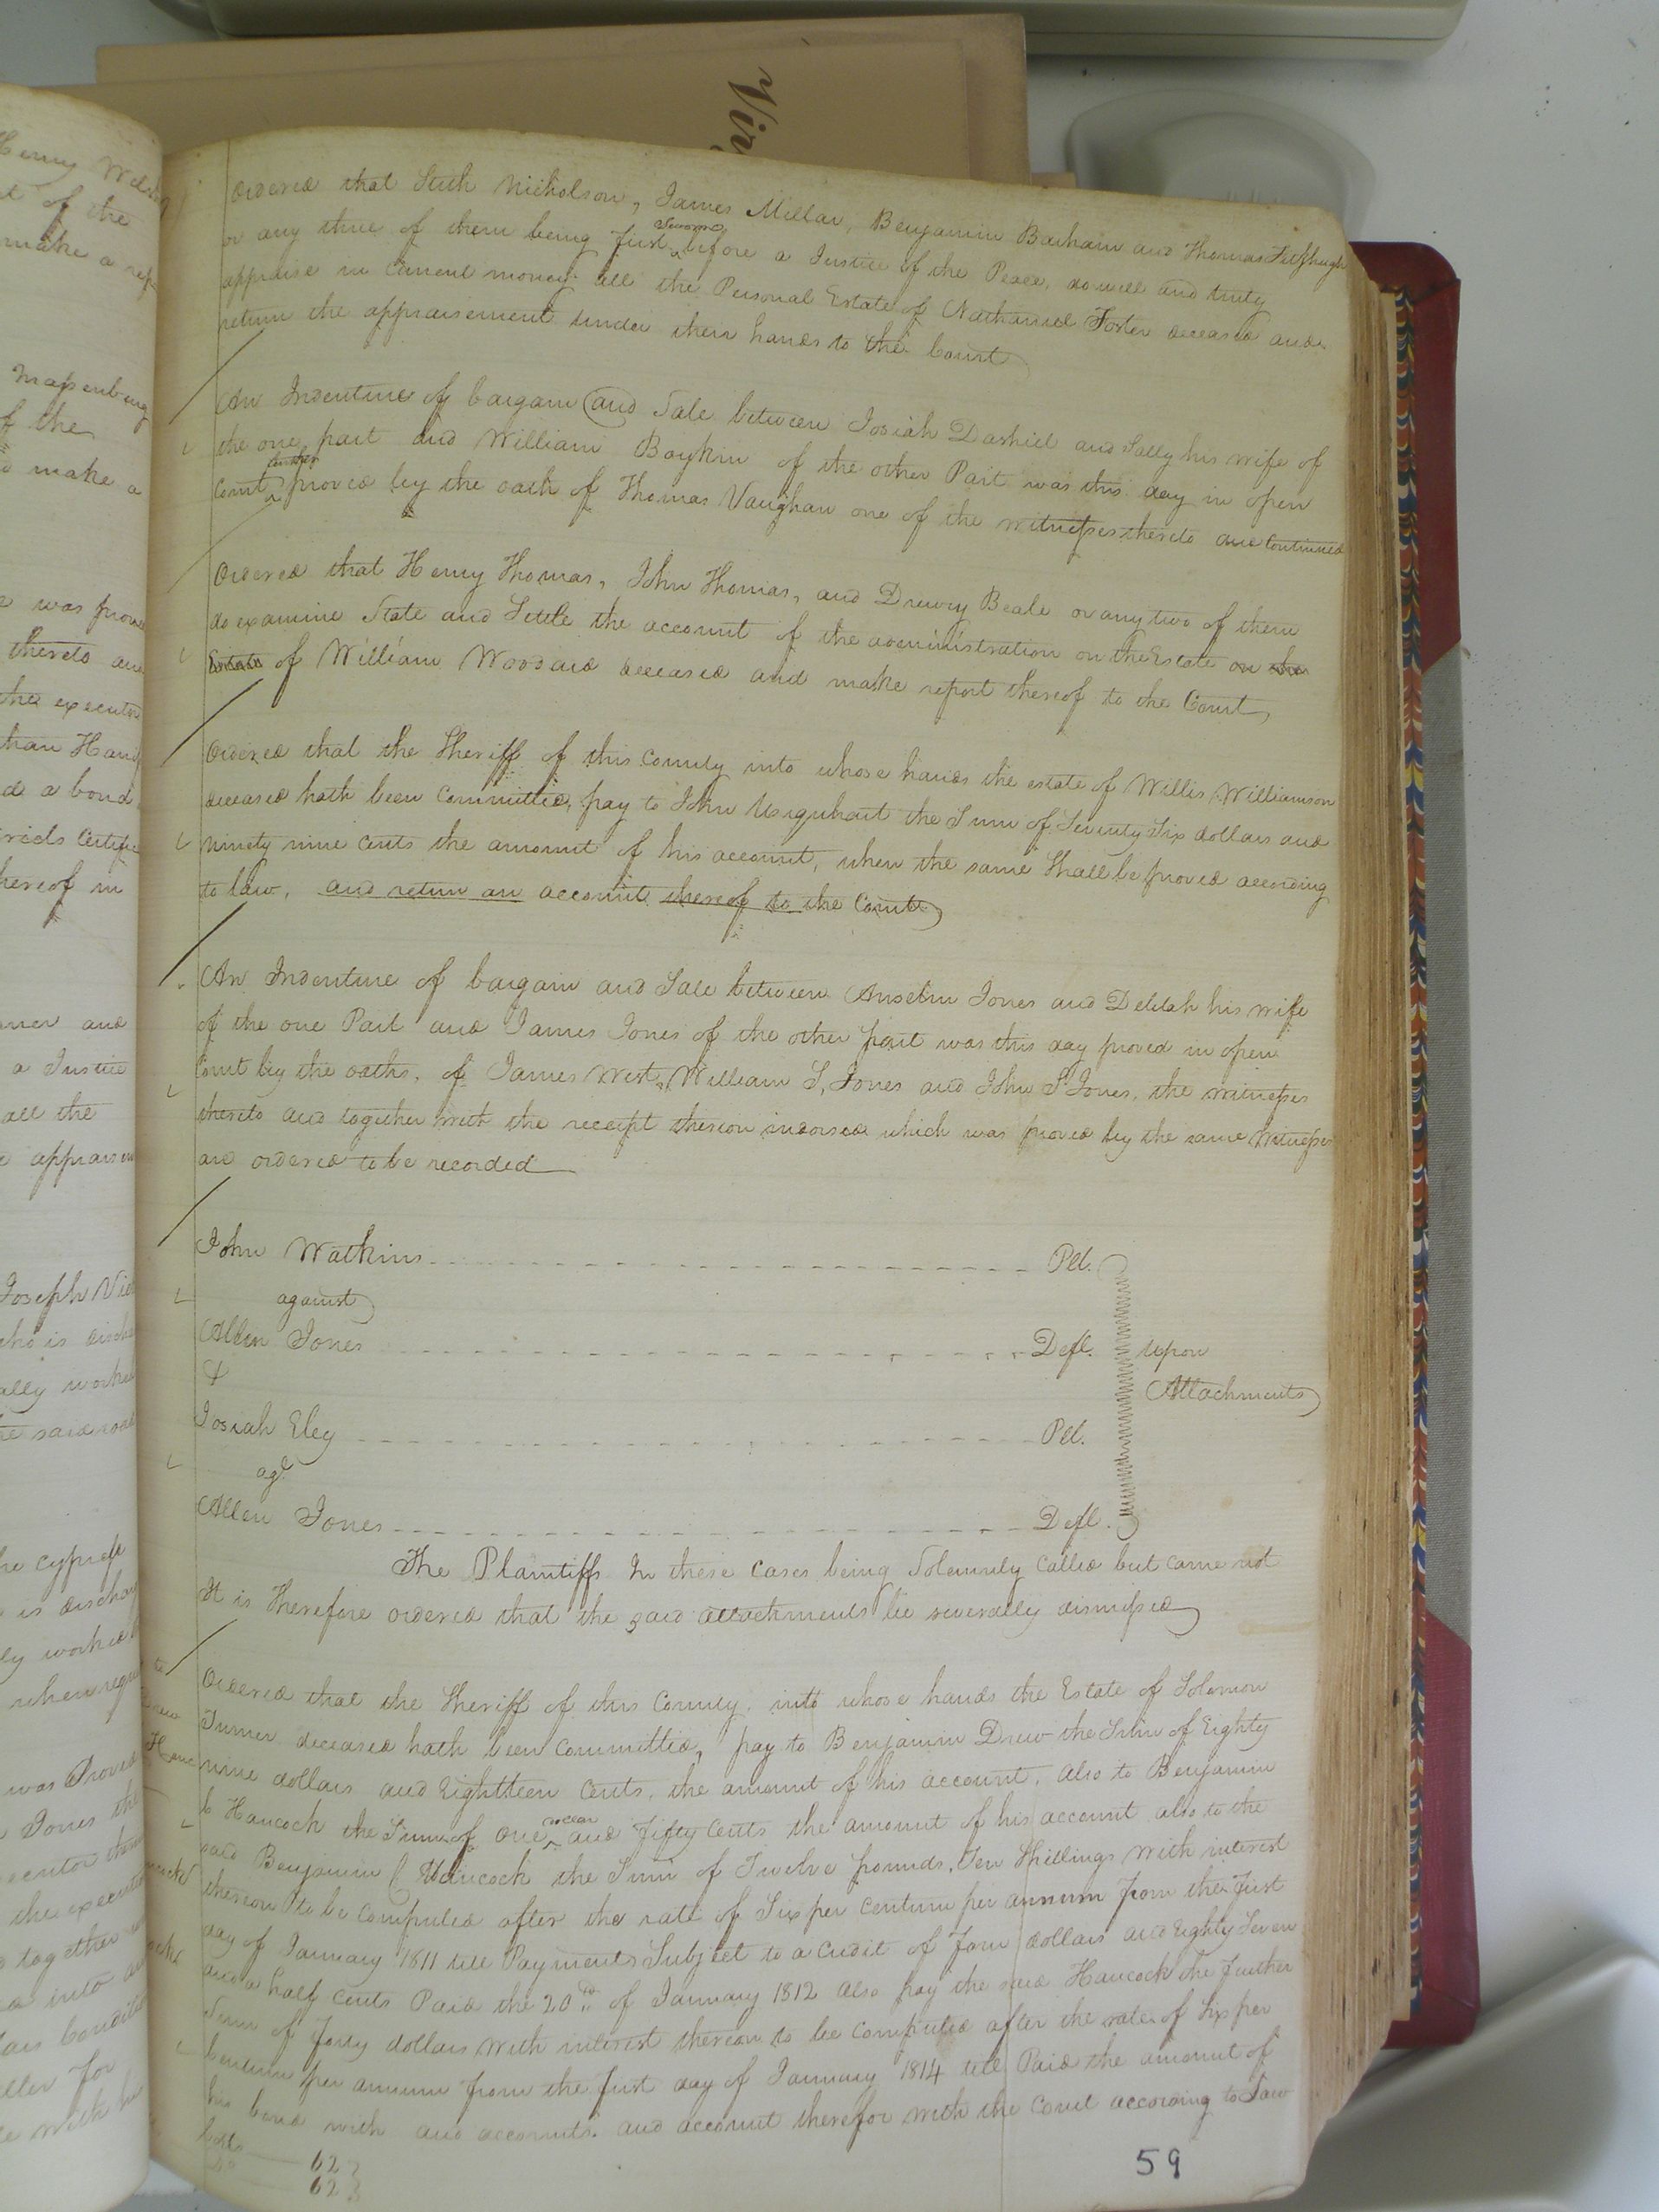 Vir
Ordered that Stith Nicholson, James Millar, Benjamin Barham and Thomas Fitzhugh
or any three of them being first sworn before a Justice of the Peace, do well and truly
appraise in current money all the Personal Estate of Nathaniel Foster deceased and
return the appraisement under their hands to the Court
An Indenture of bargain and Sale between Josiah Dashiel and Sally his wife of
the one part and William Boykin of the other Part was this day in open
Court further proved by the oath of Thomas Vaughan one of the witnesses thereto and Continued
Ordered that Henry Thomas, John Thomas, and Drewry Beale or any two of them
do examine State and Settle the account of the administration on the Estate on the
Estate of William Woodard deceased and make report thereof to the Court
Ordered that the Sheriff of this County into whose hands the estate of Willis Williamson
deceased hath been Committed, pay to John Urquhart the Sum of Seventy Six dollars and
ninety nine Cents the amount of his account, when the same Shall be proved according
to law. and return an account thereof to the Court
An Indenture of bargain and Sale between Anselm Jones and Delilah his wife
of the one Part and James Jones of the other part was this day proved in open
Court by the oaths, of James West, William S, Jones and John S Jones, the witnesses
thereto and together with the receipt thereon indorsed which was proved by the same Witnesses
are ordered to be recorded
John Watkins Plt.
against
Allen Jones Deft. Upon
&
Attachments
Josiah Eley Plt.
agt
Allen Jones Deft.
The Plaintiffs In these Cases being Solemnly Called but Came not
It is Therefore ordered that the said attachments be severally dismissed
Ordered that the Sheriff of this County. into whose hands the Estate of Solomon
Turner deceased hath been Committed, pay to Benjamin Drew the Sum of Eighty
nine dollars and Eightteen Cents, the amount of his account. also to Benjamin
Hancock the Sum of One dollar and fifty Cents the amount of his account also to the
said Benjamin Hancock the Sum of Twelve pounds, Ten Shillings with interest
thereon to be Computed after the rate of Six per Centum per annum from the first
day of January 1811 till Payments Subject to a Credit of four dollars and Eighty Seven
and a half Cents Paid the 20th of January 1812 also pay the said Hancock the further
Sum of forty dollars with interest thereon to be Computed after the rate of Six per
Centum per annum from the first day of January 1814 till Paid the amount of
his bond with and accounts. and account therefor with the Court according to Law
62
62
59